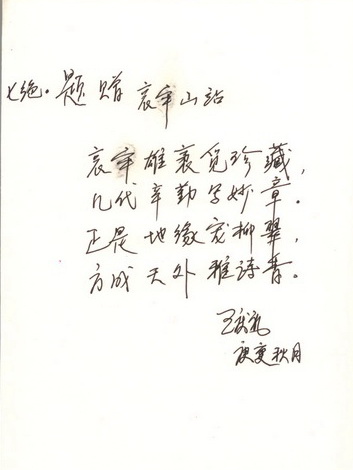 七绝·题赠哀牢山站
哀牢雄裹觅珍藏，
几代辛勤写妙章。
正是地缘宠柳翠，
方成天外雅诗青。
王庆礼
庚寅秋月